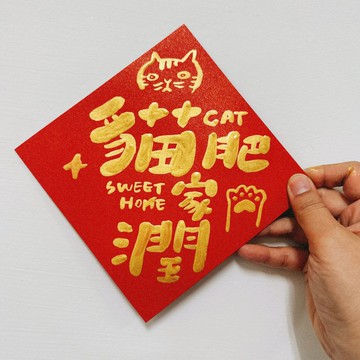 貓肥
CAT
SWEET
HOME
家
潤